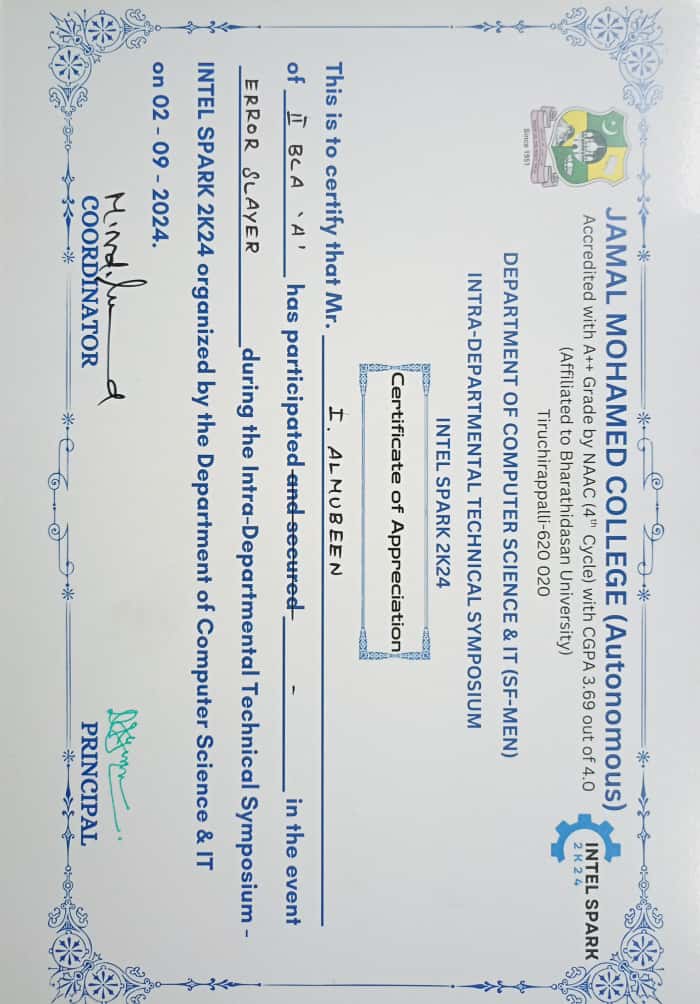 JAMAL MOHAMED COLLEGE (Autonomous)
Accredited with A++ Grade by NAAC (4th Cycle) with CGPA 3.69 out of 4.0
(Affiliated to Bharathidasan University)
Tiruchirappalli-620 020
Since 1951
INTEL SPARK
2K24
DEPARTMENT OF COMPUTER SCIENCE & IT (SF-MEN)
INTRA-DEPARTMENTAL TECHNICAL SYMPOSIUM
INTEL SPARK 2K24
Certificate of Appreciation
This is to certify that Mr. I. ALMUBEEN
of II BCA 'A' has participated and secured - in the event
ERROR SLAYER during the Intra-Departmental Technical Symposium -
INTEL SPARK 2K24 organized by the Department of Computer Science & IT
on 02 - 09 - 2024.
COORDINATOR
PRINCIPAL